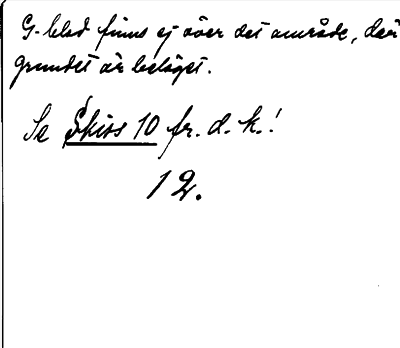 G-blad finns ej över det område, där
grundet är beläget.
Se Skiss 10 fr. d. k.!
12.